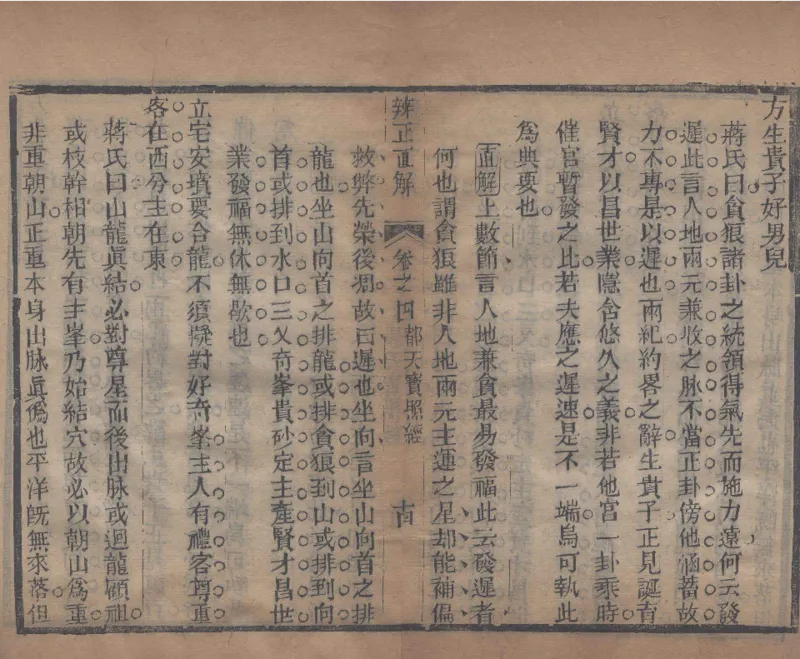 方生貴子好男兒
蔣氏曰貪狼諸卦之統領得氣先而施力遠何云發
遲此言人地兩元兼收之脉不當正卦傍他涵蓄故
力不專是以遲也兩紀約畧之辭生貴子正見誕育
賢才以昌世業隱含悠久之義非若他宮一卦乘時
催官暫發之比若夫應之遲速是不一端烏可執此
爲典要也
直解上數節言人地兼貪最易發福此云發遲者
何也謂貪狼雖非人地兩元主運之星却能補偏
辨正直解
卷之四
都天寶照經
十四
救弊先榮後凋故曰遲也坐向言坐山向首之排
龍也坐山向首之排龍或排貪狼到山或排到向
首或排到水口三叉奇峯貴砂定主產賢才昌世
業發福無休無歇也
立宅安墳要合龍不須擬對好奇峯主人有禮客尊重
客在西兮主在東
蔣氏曰山龍眞結必對尊星而後出脉或迴龍顧祖
或枝幹相朝先有主峯乃始結穴故必以朝山爲重
非重朝山正重本身出脉眞僞也平洋旣無來落但